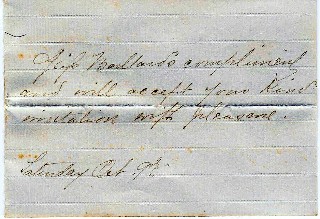 compliment
and will accept your kind
invitation with pleasure.
Saturday Oct 9th